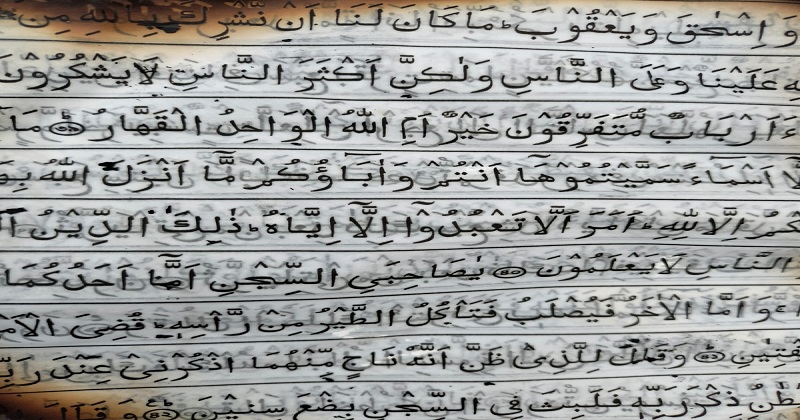 وَاِسْحٰقَ وَيَعْقُوْبَ ؕ مَا كَانَ لَنَا اَنْ نُّشْرِكَ بِاللّٰهِ مِنْ
عَلَيْنَا وَعَلَى النَّاسِ وَلٰكِنَّ اَكْثَرَ النَّاسِ لَا يَشْكُرُوْنَ
ءَاَرْبَابٌ مُّتَفَرِّقُوْنَ خَيْرٌ اَمِ اللّٰهُ الْوَاحِدُ الْقَهَّارُ ؕ مَا
اَسْمَآءً سَمَّيْتُمُوْهَا اَنْتُمْ وَاٰبَآؤُكُمْ مَّا اَنْزَلَ اللّٰهُ
اِلَّا لِلّٰهِ ؕ اَمَرَ اَلَّا تَعْبُدُوْٓا اِلَّآ اِيَّاهُ ؕ ذٰلِكَ الدِّيْنُ
النَّاسِ لَا يَعْلَمُوْنَ يٰصَاحِبَيِ السِّجْنِ اَمَّآ اَحَدُكُمَا
وَاَمَّا الْاٰخَرُ فَيُصْلَبُ فَتَاْكُلُ الطَّيْرُ مِنْ رَّاْسِهٖ ؕ قُضِيَ
وَقَالَ لِلَّذِيْ ظَنَّ اَنَّهٗ نَاجٍ مِّنْهُمَا اذْكُرْنِيْ عِنْدَ
ذِكْرَ رَبِّهٖ فَلَبِثَ فِي السِّجْنِ بِضْعَ سِنِيْنَ وَقَالَ